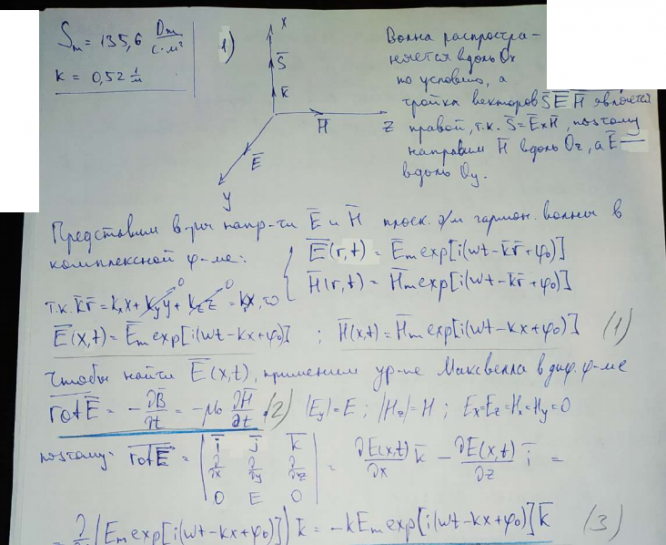 Sm = 135,6 Dm/(c·м²)
k = 0,52 1/м
1)
x
S̄
k̄
H̄
z
Ē
y
Волна распростра-
няется вдоль Ox
по условию, а
тройка векторов S̄ Ē H̄ является
правой, т.к. S̄ = Ē×H̄, поэтому
направим H̄ вдоль Oz, а Ē
вдоль Oy.
Представим в-ры напр-ти Ē и H̄ плоск. э/м гармон. волны в
комплексной ф-ме:
Ē(r,t) = Ēm exp[i(wt - k̄r̄ + φ₀)]
H̄(r,t) = H̄m exp[i(wt - k̄r̄ + φ₀)]
т.к. k̄r̄ = kₓx + k_y y + k_z z = kx, то
0 0
Ē(x,t) = Ēm exp[i(wt - kx + φ₀)] ; H̄(x,t) = H̄m exp[i(wt - kx + φ₀)] (1)
Чтобы найти Ē(x,t), применим ур-ие Максвелла в диф. ф-ме
rotĒ = -∂B̄/∂t = -μ₀ ∂H̄/∂t (2) |Ey| = E ; |Hz| = H ; Ex=Ez=Hx=Hy=0
поэтому: rotĒ = | ī j̄ k̄ |
| ∂/∂x ∂/∂y ∂/∂z | = ∂E(x,t)/∂x k̄ - ∂E(x,t)/∂z ī =
| 0 E 0 |
(Em exp[i(wt - kx + φ₀)]) k̄ = -kEm exp[i(wt - kx + φ₀)] k̄ (3)